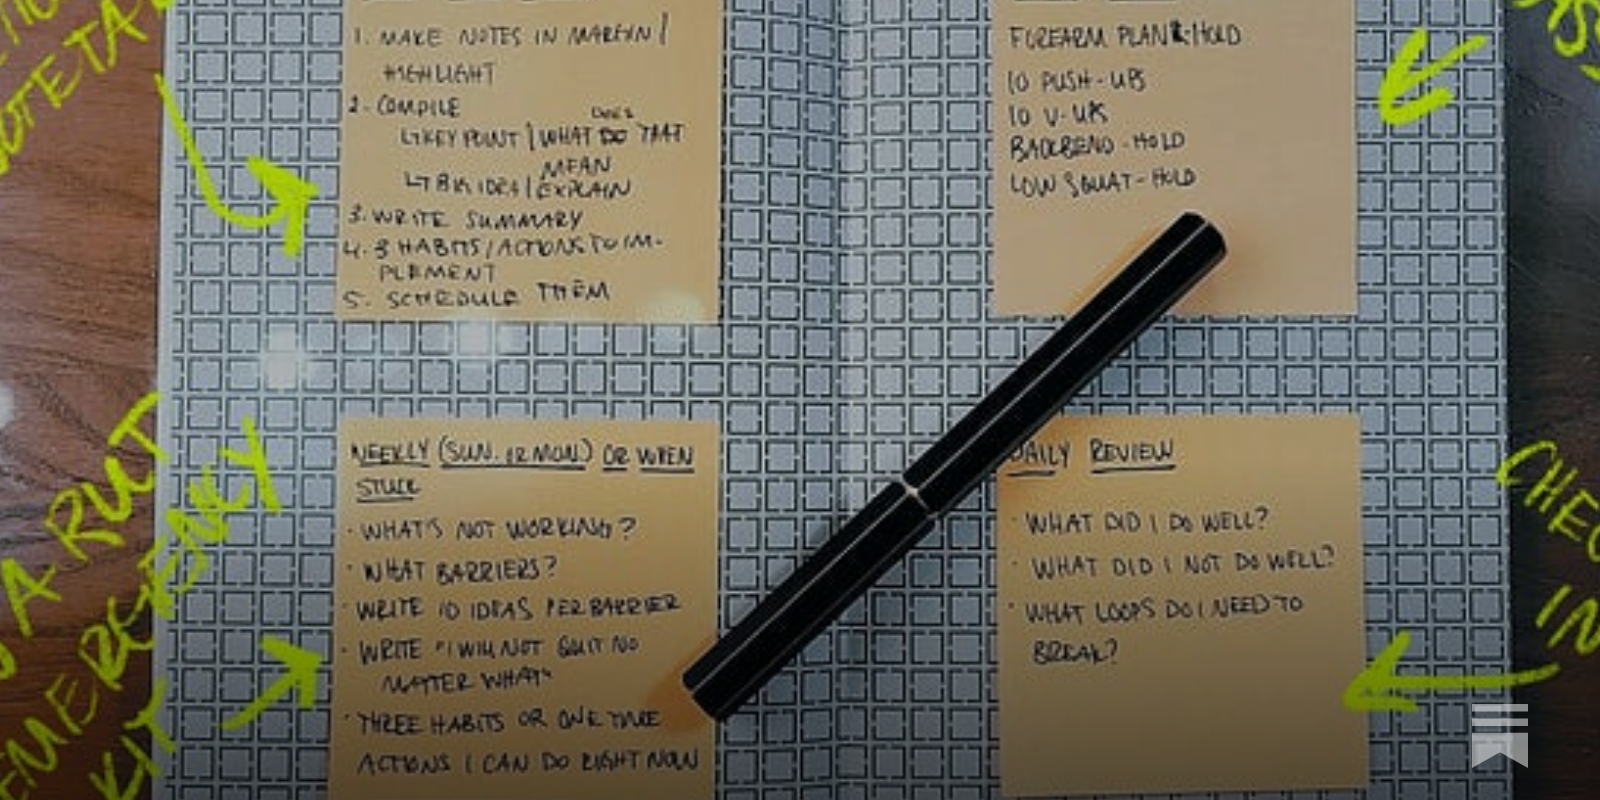 1. MAKE NOTES IN MARGIN /
HIGHLIGHT
2. COMPILE
DOES
↳ KEY POINT / WHAT DO THAT
MEAN
↳ BIG IDEA / EXPLAIN
3. WRITE SUMMARY
4. 3 HABITS / ACTIONS TO IM-
PLEMENT
5. SCHEDULE THEM
FOREARM PLANK-HOLD
10 PUSH-UPS
10 V-UPS
BACKBEND-HOLD
LOW SQUAT-HOLD
WEEKLY (SUN. OR MON.) OR WHEN
STUCK
· WHAT'S NOT WORKING?
· WHAT BARRIERS?
· WRITE 10 IDEAS PER BARRIER
· WRITE "I WILL NOT QUIT NO
MATTER WHAT"
· THREE HABITS OR ONE TIME
ACTIONS I CAN DO RIGHT NOW
DAILY REVIEW
· WHAT DID I DO WELL?
· WHAT DID I NOT DO WELL?
· WHAT LOOPS DO I NEED TO
BREAK?
A RUT
EMERGENCY
KIT
IN